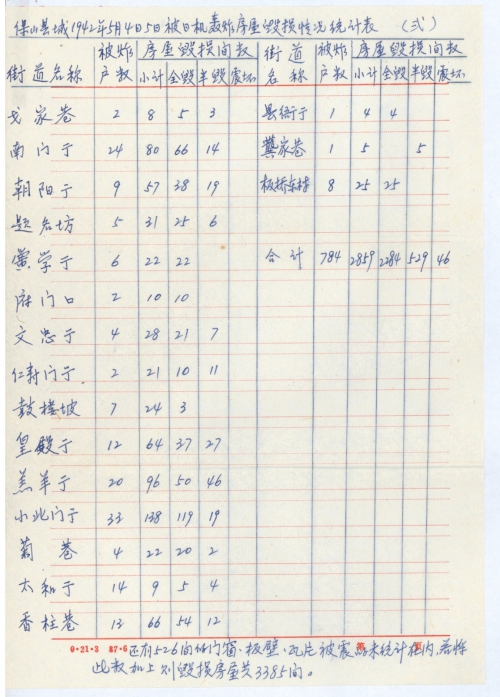 保山县城1942年5月4日5日被日机轰炸房屋毁损情况统计表 （弍）
街道名称 被炸户数 房屋毁损间数 小计 全毁 半毁 震坏 街道名称 被炸户数 房屋毁损间数 小计 全毁 半毁 震坏
戈家巷 2 8 5 3 县衙于 1 4 4
南门于 24 80 66 14 龚家巷 1 5 5
朝阳于 9 57 38 19 板桥东村 8 25 25
题名坊 5 31 25 6
黉学于 6 22 22 合计 784 2859 2284 529 46
府门口 2 10 10
文忠于 4 28 21 7
仁寿门于 2 21 10 11
鼓楼坡 7 24 3
皇殿于 12 64 37 27
羔羊于 20 96 50 46
小北门于 33 138 119 19
葡巷 4 22 20 2
太和于 14 9 5 4
香柱巷 13 66 54 12
0·21·3 87·6 还有526间的门窗、板壁、瓦片被震 未统计在内，若将
此数加上则毁损房屋共3385间。